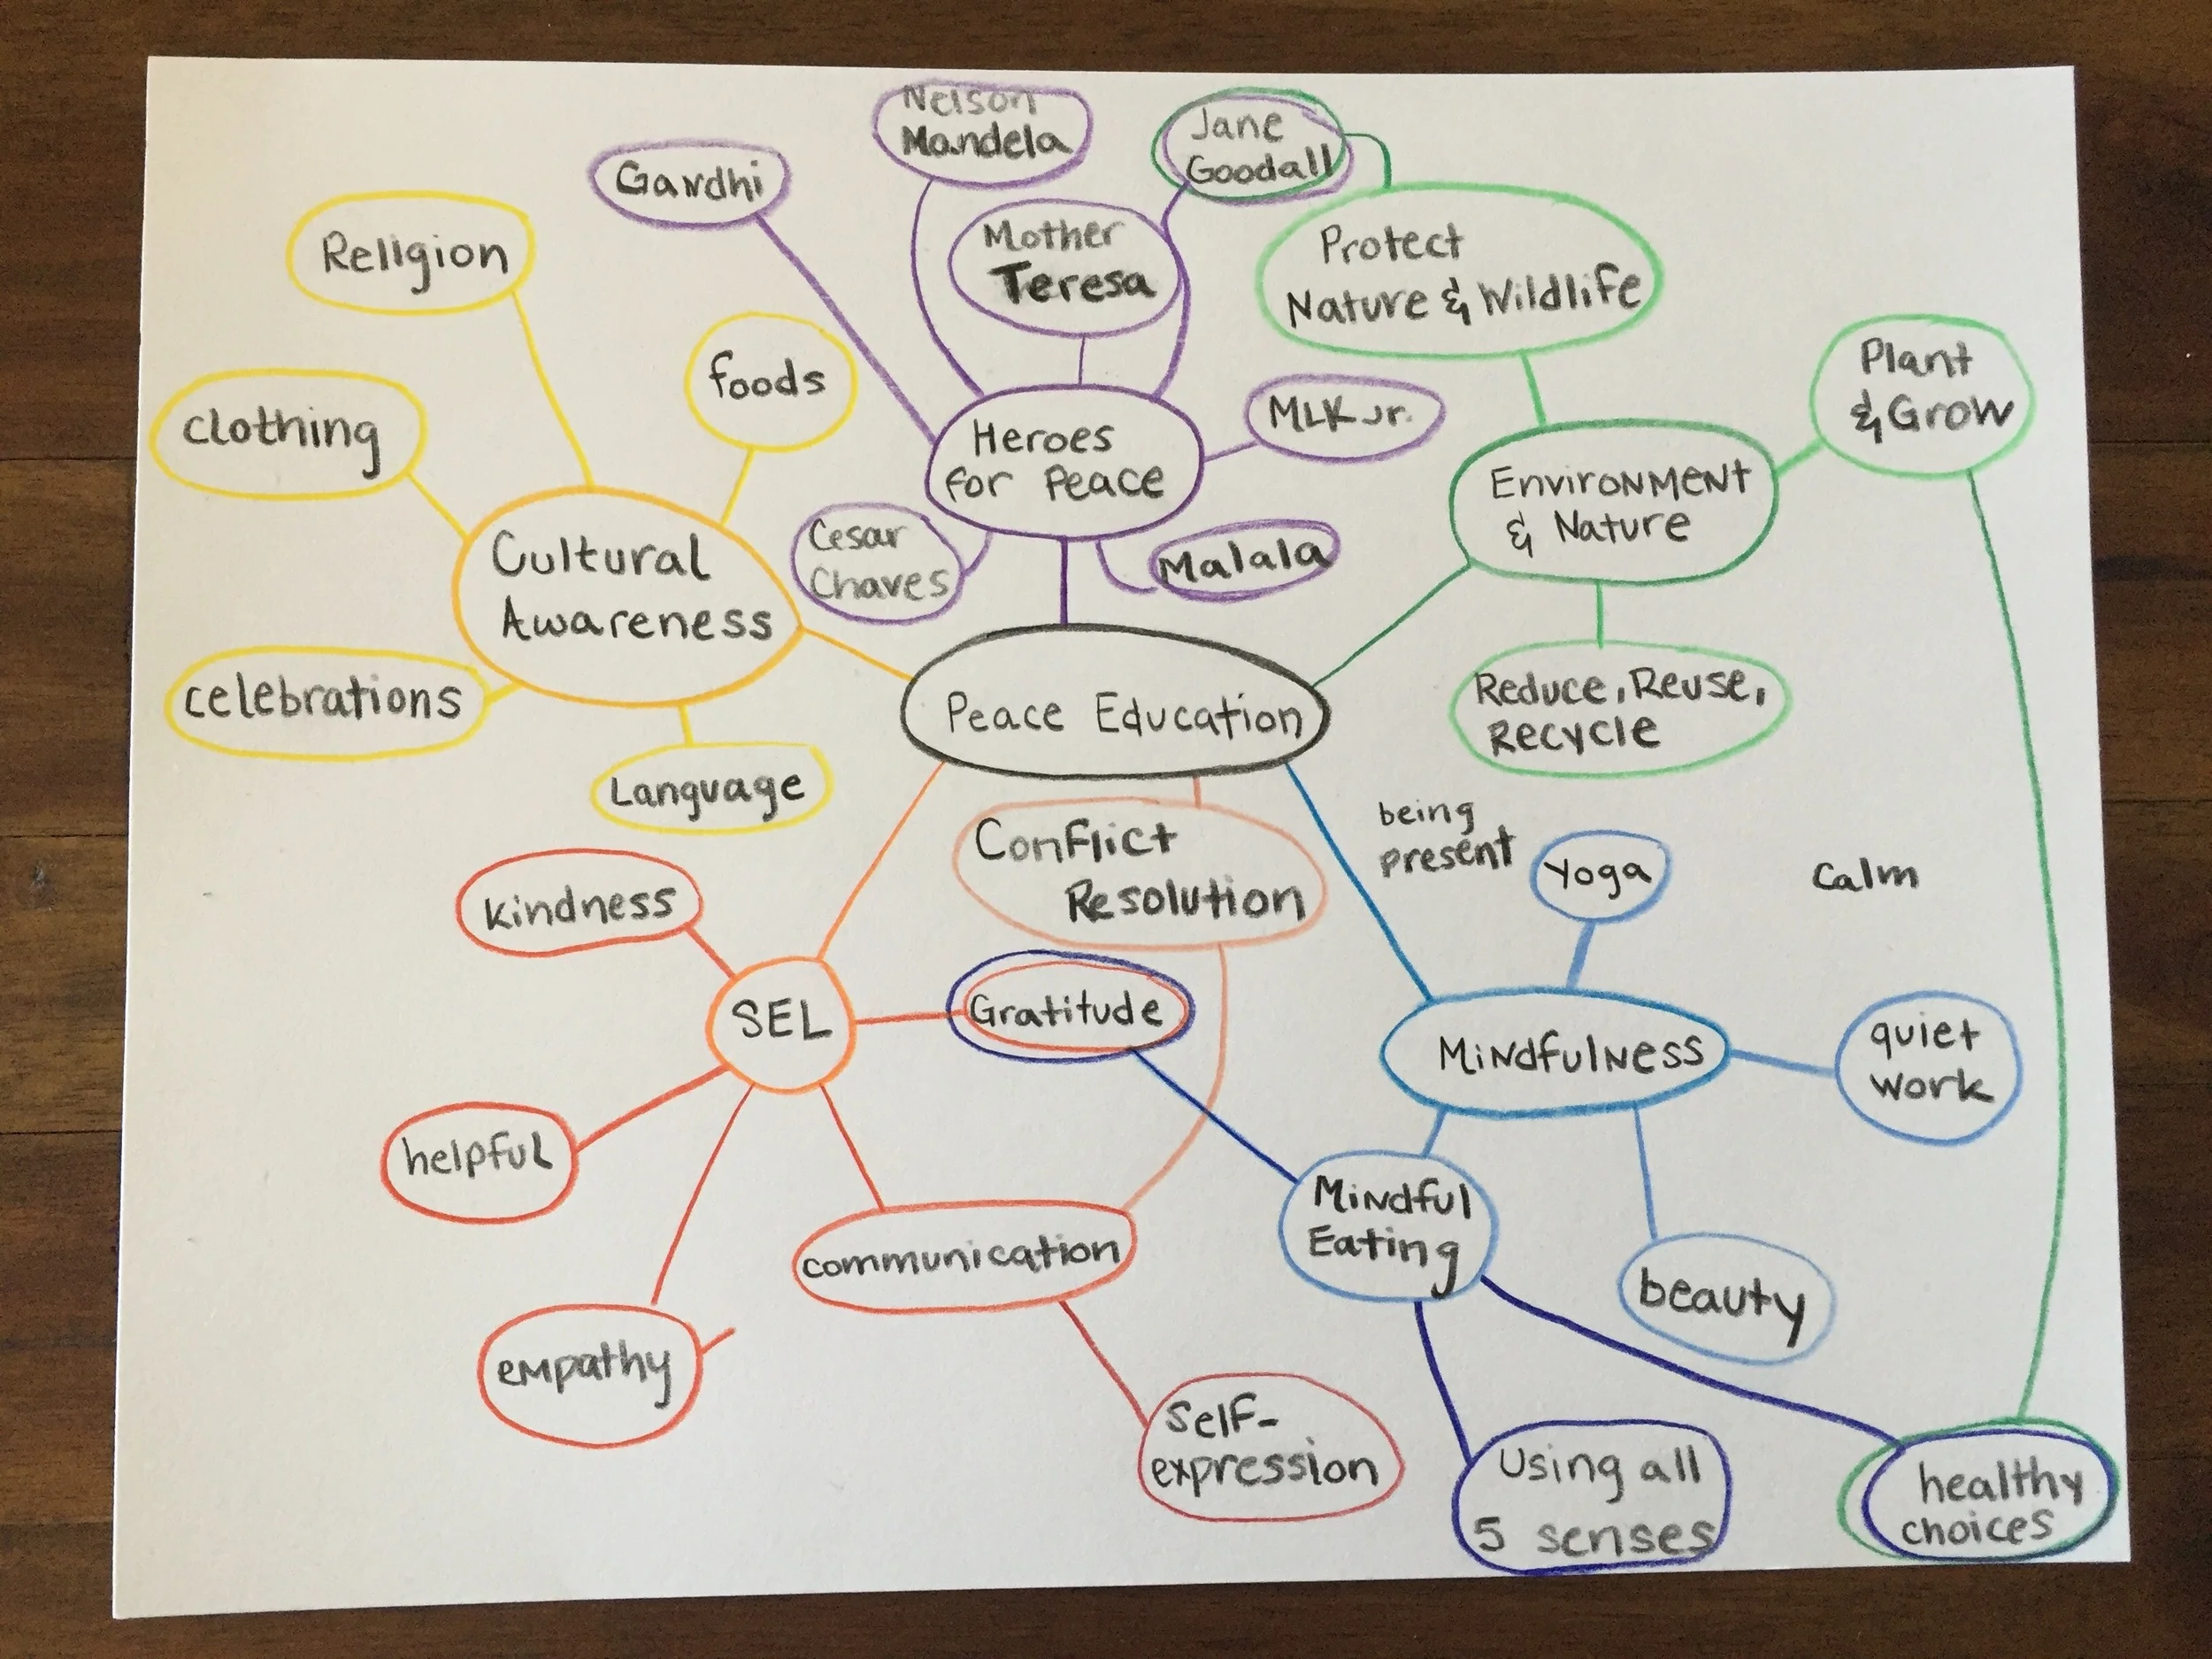 Nelson
Mandela
Jane
Goodall
Gandhi
Mother
Teresa
Religion
Protect
Nature & Wildlife
foods
Plant
& Grow
clothing
MLK Jr.
Heroes
for Peace
Environment
& Nature
Cesar
Chaves
Malala
Cultural
Awareness
celebrations
Peace Education
Reduce, Reuse,
Recycle
Language
being
present
Yoga
Calm
Conflict
Resolution
kindness
SEL
Gratitude
Mindfulness
quiet
work
helpful
communication
Mindful
Eating
beauty
empathy
Self-
expression
Using all
5 senses
healthy
choices